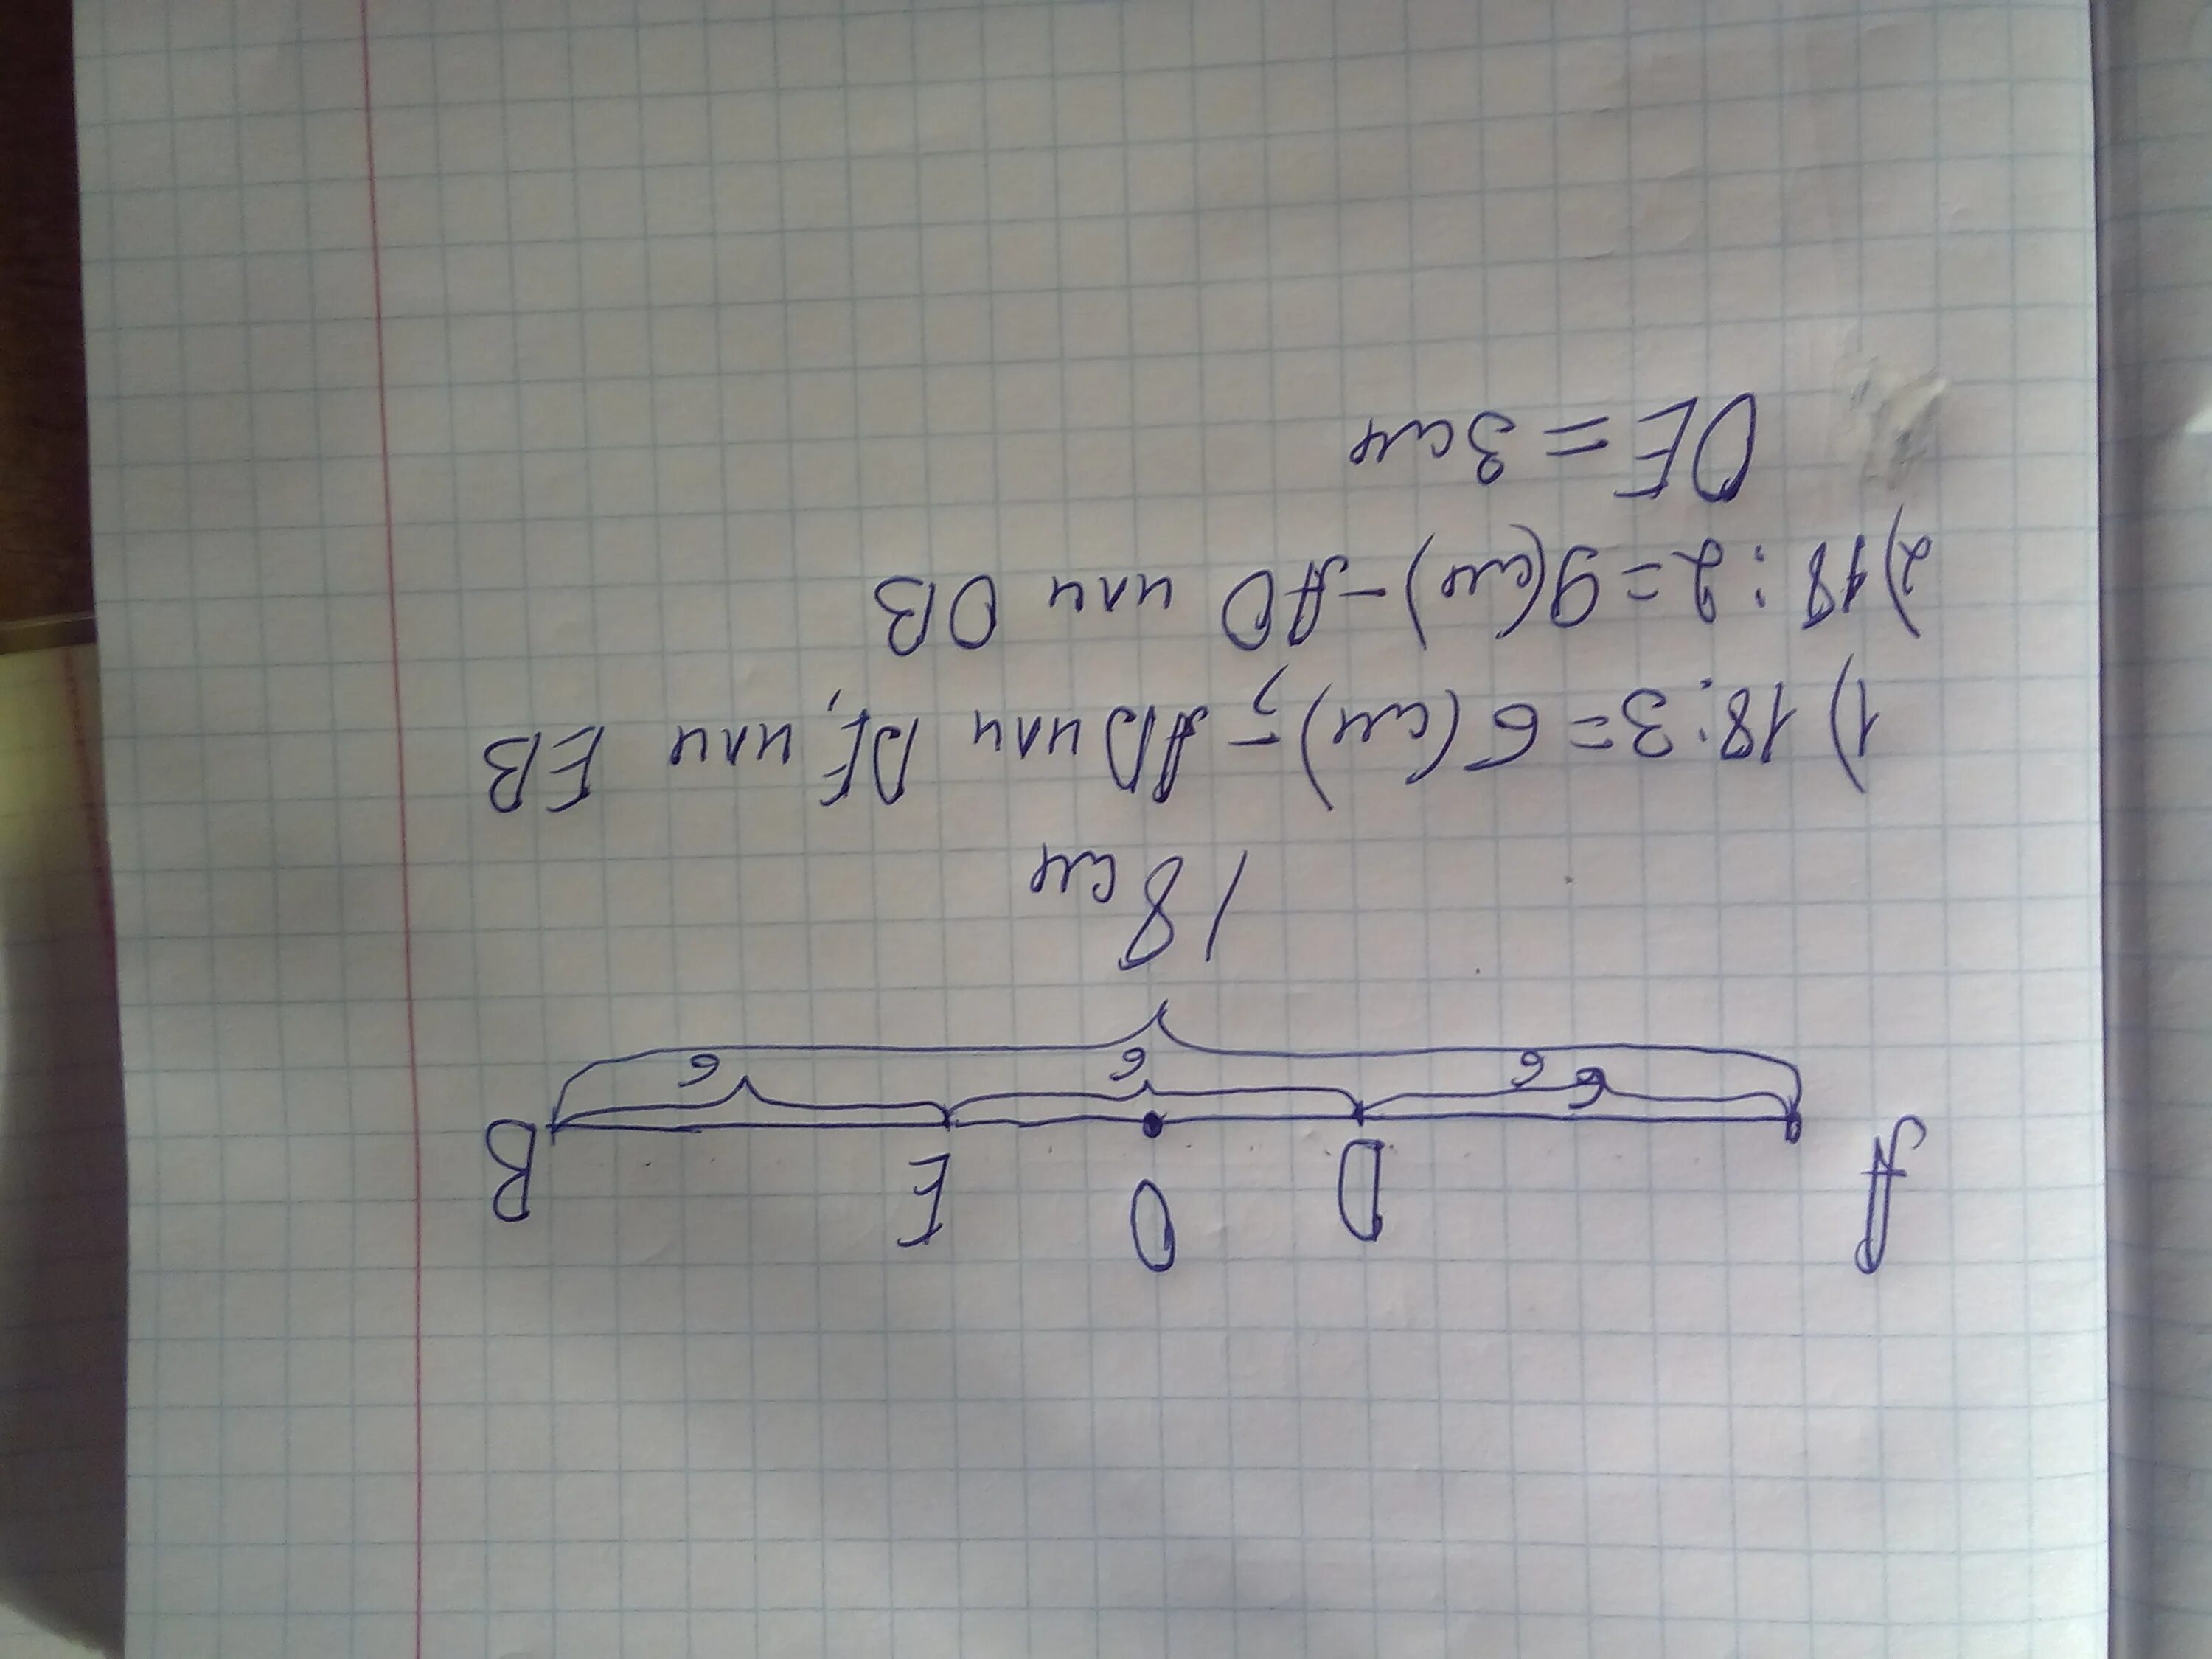 A D O E B
6 6 6 6
18 см
1) 18:3=6(см)-AD или DE, или EB
2) 18:2=9(см)-AO или OB
OE=3см